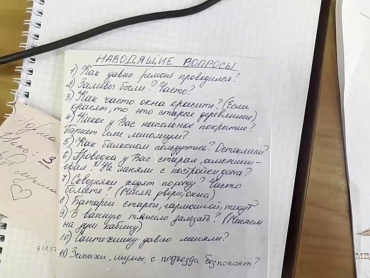 НАВОДЯЩИЕ ВОПРОСЫ
1) Как давно ремонт проводился?
2) Заливы были? Часто?
3) Как часто окна красите? (Если
красят, то это старые деревянные)
4) Какое у Вас напольное покрытие?
Паркет или линолеум?
5) Как балконом пользуетесь? Остеклен?
6) Проводка у Вас старая, алюминие-
вая? Не меняли с постройки дома?
7) Сквозняки ходят поройу? Часто
болеете? (Менять двери, окна)
8) Батареи старые, гармошкой, текут
9) В ванную тяжело залезать? (Меняем
на душ кабину)
10) Сантехнику давно меняли?
11) Запахи, шумы с подъезда беспокоят?